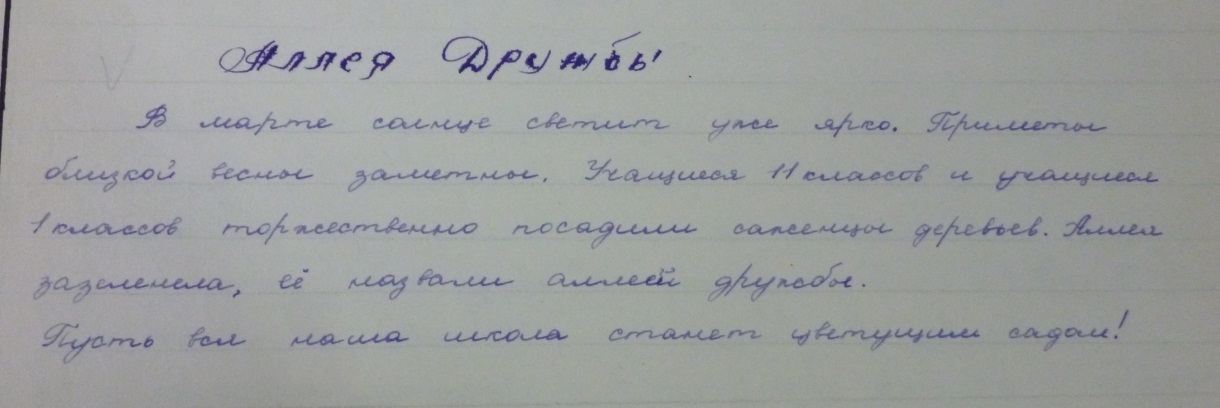 Аллея Дружбы
В марте солнце светит уже ярко. Приметы
близкой весны заметны. Учащиеся 11 классов и учащиеся
1 классов торжественно посадили саженцы деревьев. Аллея
зазеленела, её назвали аллеей дружбы.
Пусть вся наша школа станет цветущим садом!